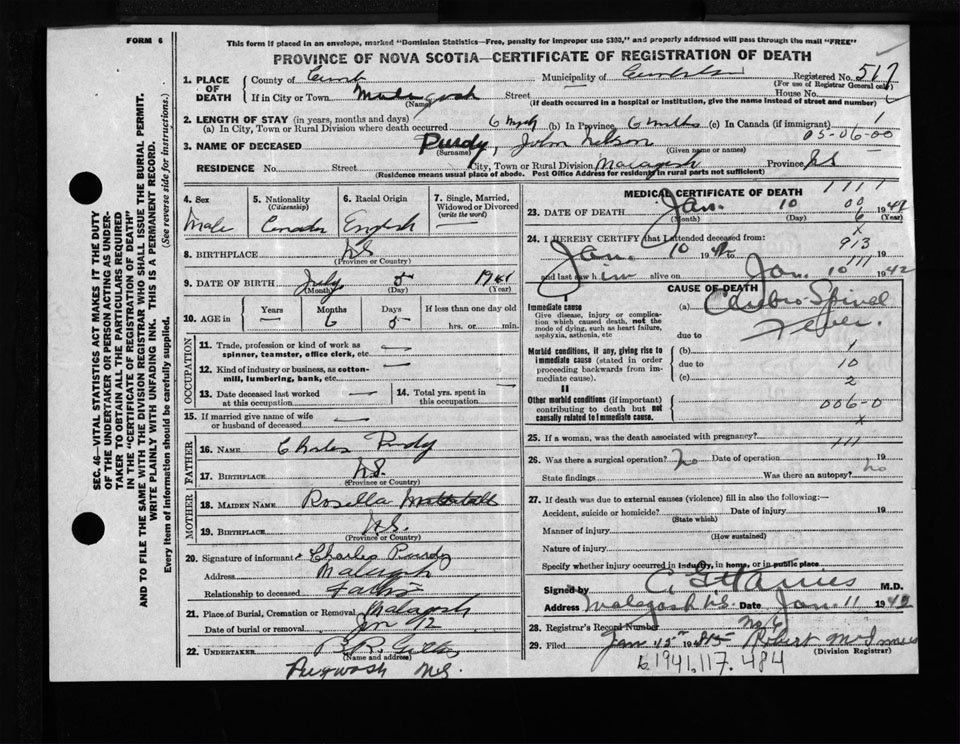 FORM 6
This form if placed in an envelope, marked "Dominion Statistics—Free, penalty for improper use $300," and properly addressed will pass through the mail "FREE"
PROVINCE OF NOVA SCOTIA—CERTIFICATE OF REGISTRATION OF DEATH
SEC. 46—VITAL STATISTICS ACT MAKES IT THE DUTY
OF THE UNDERTAKER OR PERSON ACTING AS UNDER-
TAKER TO OBTAIN ALL THE PARTICULARS REQUIRED
IN THE "CERTIFICATE OF REGISTRATION OF DEATH"
AND TO FILE THE SAME WITH THE DIVISION REGISTRAR WHO SHALL ISSUE THE BURIAL PERMIT.
WRITE PLAINLY WITH UNFADING INK. THIS IS A PERMANENT RECORD.
Every item of information should be carefully supplied. (See reverse side for instructions.)
1. PLACE OF DEATH County of Cumb Municipality of Registered No. 517
(For use of Registrar General only)
If in City or Town Malagash Street House No.
(Name) (If death occurred in a hospital or institution, give the name instead of street and number)
2. LENGTH OF STAY (in years, months and days)
(a) In City, Town or Rural Division where death occurred 6 mths (b) In Province 6 mths (c) In Canada (if immigrant) 1
05-06-00
3. NAME OF DECEASED Purdy, John Nelson
(Surname) (Given name or names)
RESIDENCE No. Street City, Town or Rural Division Malagash Province N.S.
(Residence means usual place of abode. Post Office Address for residents in rural parts not sufficient)
4. Sex Male
5. Nationality (Citizenship) Canada
6. Racial Origin English
7. Single, Married, Widowed or Divorced (write the word) —
8. BIRTHPLACE N.S.
(Province or Country)
9. DATE OF BIRTH July 5 1941
(Month) (Day) (Year)
10. AGE in Years — Months 6 Days 5 If less than one day old hrs. or min.
OCCUPATION
11. Trade, profession or kind of work as spinner, teamster, office clerk, etc. —
12. Kind of industry or business, as cotton-mill, lumbering, bank, etc. —
13. Date deceased last worked at this occupation —
14. Total yrs. spent in this occupation —
15. If married give name of wife or husband of deceased —
FATHER
16. NAME Charles Purdy
17. BIRTHPLACE N.S.
(Province or Country)
MOTHER
18. MAIDEN NAME Rosella
19. BIRTHPLACE N.S.
(Province or Country)
20. Signature of informant Charles Purdy
Address Malagash
Relationship to deceased Father
21. Place of Burial, Cremation or Removal Malagash
Date of burial or removal Jan 12
22. UNDERTAKER
(Name and address)
N.S.
MEDICAL CERTIFICATE OF DEATH
1111
23. DATE OF DEATH Jan. 10 1942
00
6
(Month) (Day) (Year)
24. I HEREBY CERTIFY that I attended deceased from:
x
913
Jan. 10 1942 to 19
111
and last saw him alive on Jan. 10 1942
CAUSE OF DEATH
I
Immediate cause
Give disease, injury or complication which caused death, not the mode of dying, such as heart failure, asphyxia, asthenia, etc
(a) Cerebro Spinal
due to Fever.
Morbid conditions, if any, giving rise to immediate cause (stated in order proceeding backwards from immediate cause).
(b) 1
due to 10
(c) 2
II
Other morbid conditions (if important) contributing to death but not causally related to immediate cause.
006-0
x
25. If a woman, was the death associated with pregnancy?
111
26. Was there a surgical operation? no Date of operation 19
State findings Was there an autopsy? no
27. If death was due to external causes (violence) fill in also the following:—
Accident, suicide or homicide? Date of injury 19
(State which)
Manner of injury
(How sustained)
Nature of injury
Specify whether injury occurred in industry, in home, or in public place
Signed by M.D.
Address Malagash N.S. Date Jan. 11 1942
28. Registrar's Record Number No 6
29. Filed Jan 15th 19 Robert McInnes
(Division Registrar)
b.1941.117.484